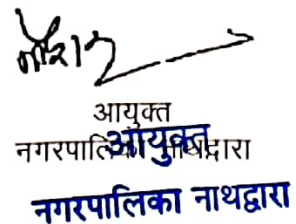 आयुक्त
नगरपालिका नाथद्वारा
आयुक्त
नगरपालिका नाथद्वारा